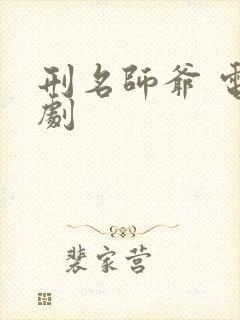 刑名師爺 電
劇
裴家营